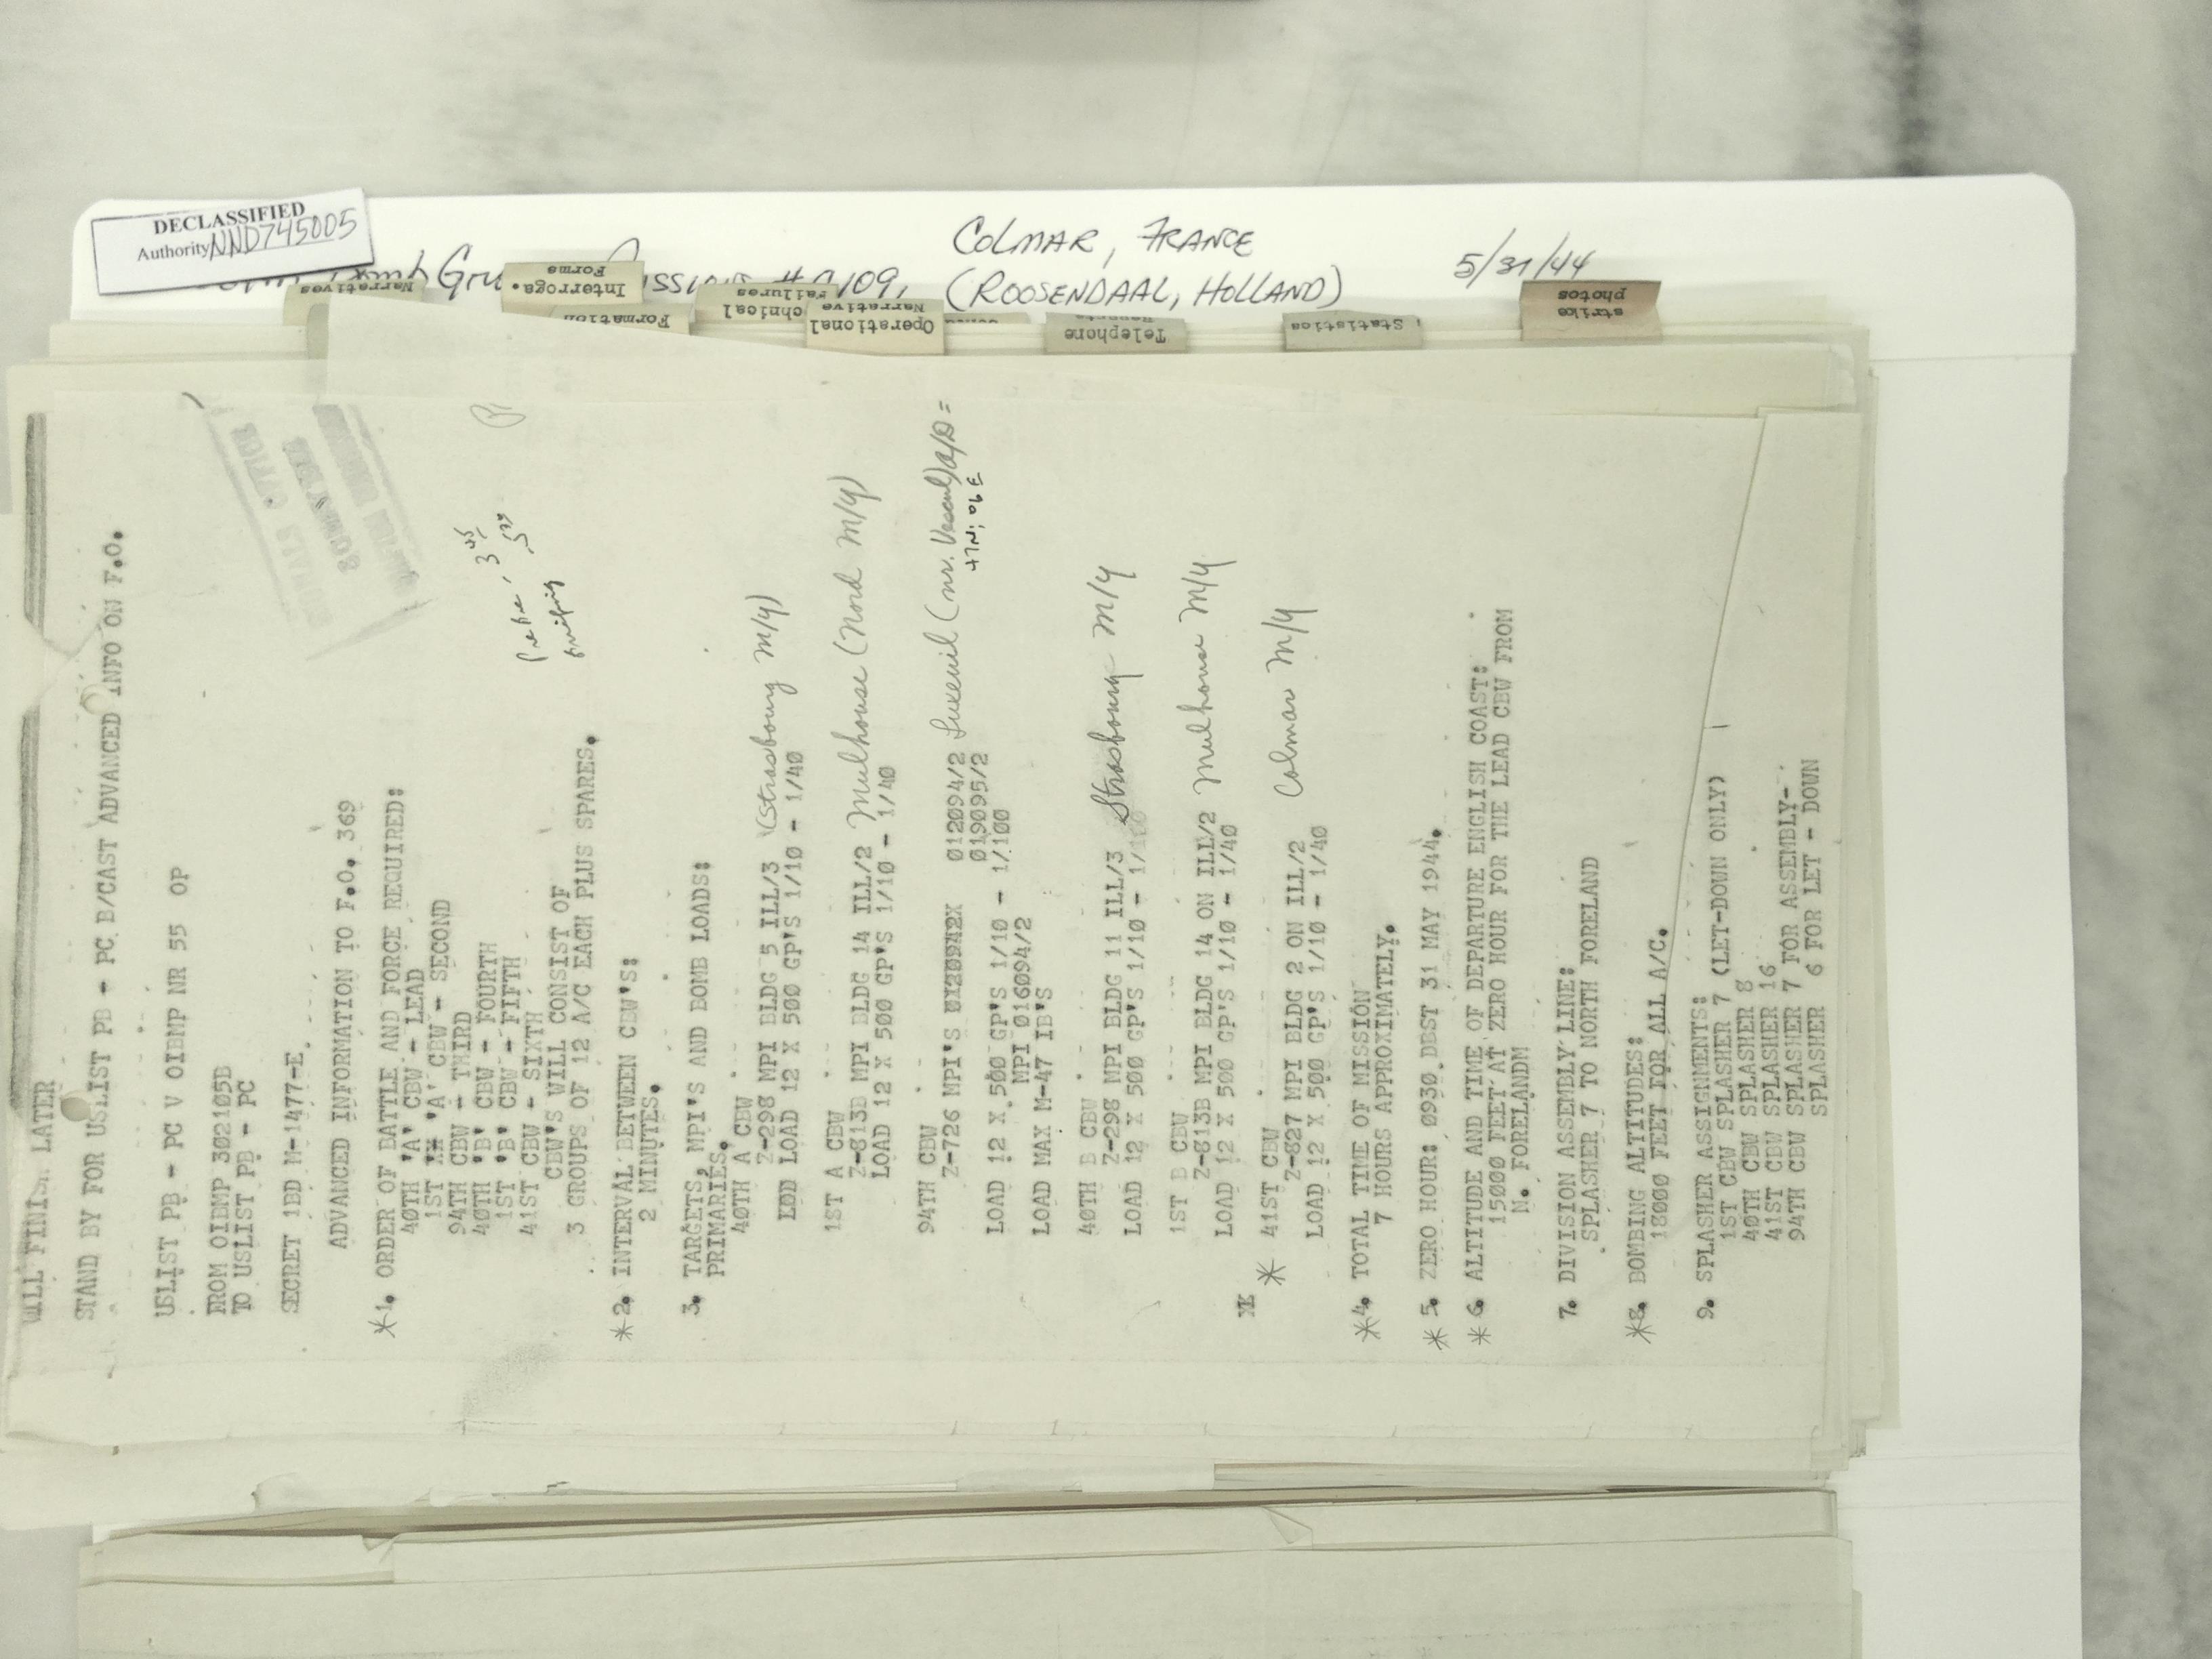 DECLASSIFIED
Authority NND745005
COLMAR, FRANCE
#109, (ROOSENDAAL, HOLLAND)
5/31/44
Narratives
Interroga.
Forms
Formation
Failures
Operational
Narrative
Telephone
Reports
Statistics
strike
photos
WILL FINISH LATER
STAND BY FOR USLIST PB - PC B/CAST ADVANCED INFO ON F.O.
USLIST PB - PC V OIBMP NR 55 OP
FROM OIBMP 302105B
TO USLIST PB - PC
SECRET 1BD M-1477-E.
ADVANCED INFORMATION TO F.O. 369
*1. ORDER OF BATTLE AND FORCE REQUIRED:
40TH 'A' CBW - LEAD
1ST XH 'A' CBW - SECOND
94TH CBW - THIRD
40TH 'B' CBW - FOURTH
1ST 'B' CBW - FIFTH
41ST CBW - SIXTH
CBW'S WILL CONSIST OF
3 GROUPS OF 12 A/C EACH PLUS SPARES.
*2. INTERVAL BETWEEN CBW'S:
2 MINUTES.
3. TARGETS, MPI'S AND BOMB LOADS:
PRIMARIES.
40TH A CBW
Z-298 MPI BLDG 5 ILL/3 (Strasbourg m/y)
LOD LOAD 12 X 500 GP'S 1/10 - 1/40
1ST A CBW
Z-813B MPI BLDG 14 ILL/2 Mulhouse (Nord m/y)
LOAD 12 X 500 GP'S 1/10 - 1/40
94TH CBW
Z-726 MPI'S 012094/2 Luxeuil (nr. Vesoul) A/D =
019095/2
LOAD 12 X 500 GP'S 1/10 - 1/100
MPI 016094/2
LOAD MAX M-47 IB'S
40TH B CBW
Z-298 MPI BLDG 11 ILL/3 Strasbourg m/y
LOAD 12 X 500 GP'S 1/10 - 1/100
1ST B CBW
Z-813B MPI BLDG 14 ON ILL/2 Mulhouse m/y
LOAD 12 X 500 GP'S 1/10 - 1/40
XK
* 41ST CBW
Z-827 MPI BLDG 2 ON ILL/2 Colmar m/y
LOAD 12 X 500 GP'S 1/10 - 1/40
*4. TOTAL TIME OF MISSION
7 HOURS APPROXIMATELY.
* 5. ZERO HOUR: 0930 DBST 31 MAY 1944.
* 6. ALTITUDE AND TIME OF DEPARTURE ENGLISH COAST:
15000 FEET AT ZERO HOUR FOR THE LEAD CBW FROM
N. FORELANDM
7. DIVISION ASSEMBLY LINE:
SPLASHER 7 TO NORTH FORELAND
*8. BOMBING ALTITUDES:
18000 FEET FOR ALL A/C.
9. SPLASHER ASSIGNMENTS:
1ST CBW SPLASHER 7 (LET-DOWN ONLY)
40TH CBW SPLASHER 8
41ST CBW SPLASHER 16
94TH CBW SPLASHER 7 FOR ASSEMBLY-
SPLASHER 6 FOR LET - DOWN